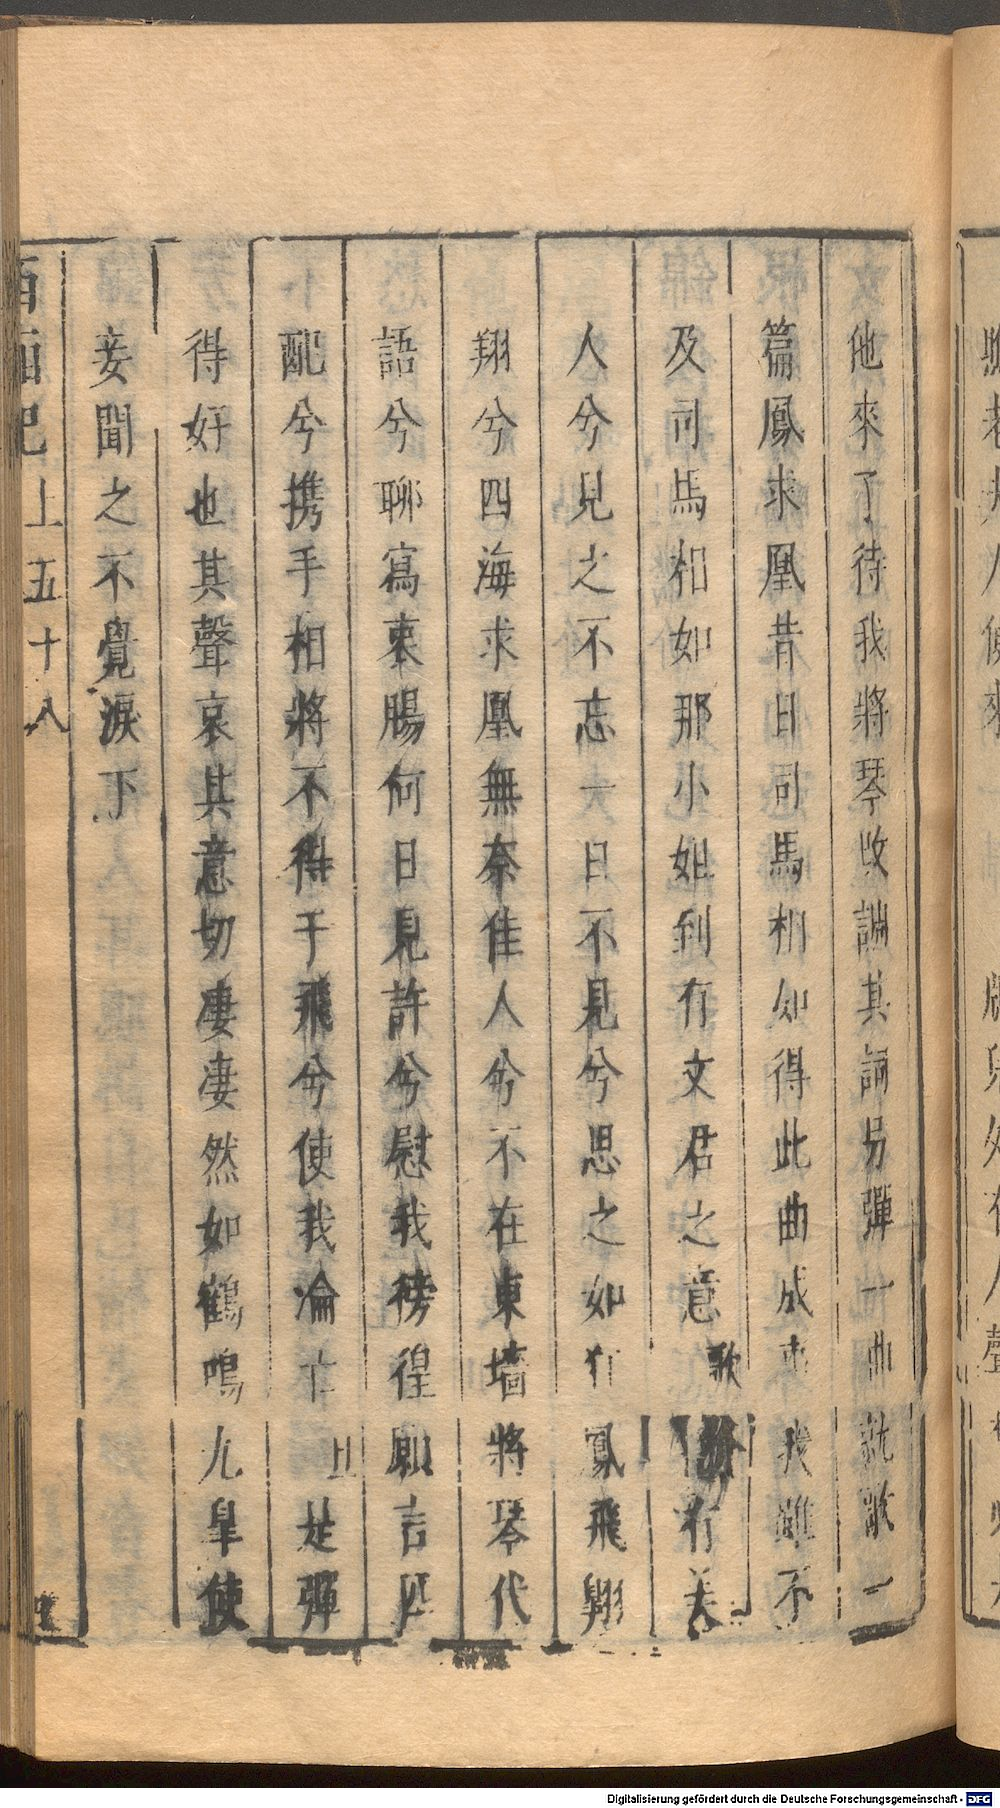 他來了待我將琴改調其詞另彈一曲就歌一
篇鳳求凰昔日司馬相如得此曲成事我雖不
及司馬相如那小姐到有文君之意歌 有美
人兮見之不忘一日不見兮思之如狂鳳飛翱
翔兮四海求凰無奈佳人兮不在東墻將琴代
語兮聊寫衷腸何日見許兮慰我徬徨願言
配兮攜手相將不得于飛兮使我淪亡 旦是彈
得好也其聲哀其意切凄凄然如鶴鳴九皐使
妾聞之不覺淚下
西廂記上五十八
Digitalisierung gefördert durch die Deutsche Forschungsgemeinschaft - DFG